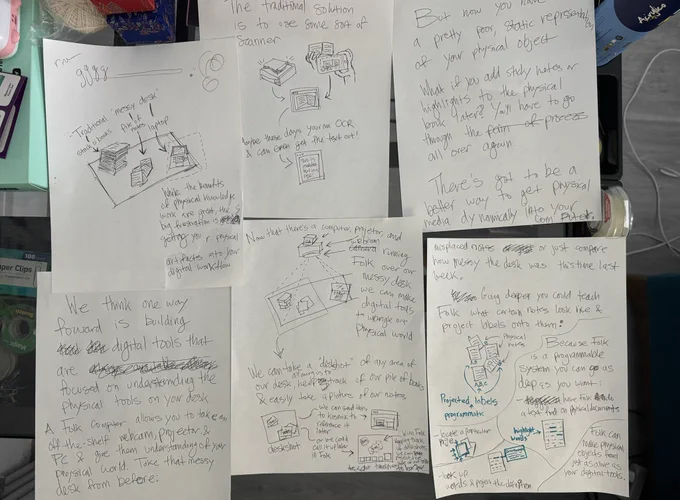 gggg
Traditional "messy desk"
stack of books
pile of notes
laptop
While the benefits
of physical knowledge
work are great, the
big frustration is
getting your physical
artifacts into your
digital workflow
The traditional solution
is to use some sort of
Scanner
Maybe these days you run OCR
& can even get the text out!
But now you have
a pretty poor, static
of your physical object
What if you add sticky notes or
highlights to the physical
book later? You'll have to go
through the process
all over again
There's got to be a
better way to get physical
media dynamically into your
computer
We think one way
foward is building
digital tools that
are
focused on understanding the
physical tools on your desk
A Folk Computer allows you to take
off-the-shelf webcam, projector, &
PC & give them understanding of your
physical world. Take that messy
desk from before:
Now that there's a computer, projector and
webcam
running
Folk over our
messy desk
we can make
digital tools
to wrangle our
physical world
We can take a "deskshot" of any area of
our desk
track of our pile of books
& easily take a picture of our notes
deskshot
we can send them
to
reference it
later
or we could
call it up later
in Folk
misplaced notes or just compare
how messy the desk was this time last
week.
Going deeper you could teach
Folk what certain notes look like &
project labels onto them:
physical
notes
ABC
Projected labels
programmatic
Because Folk
is a programmable
system you can go as
deep as you want:
have Folk
a text tool on physical documents
locate a particular
highlight
words
look up
words & project the definition
Folk can
make physical
objects feel
just as alive as
your digital tools.
100
Paper Clips